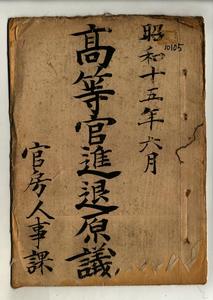 昭和十五年六月
10105
高等官進退原議
官房人事課